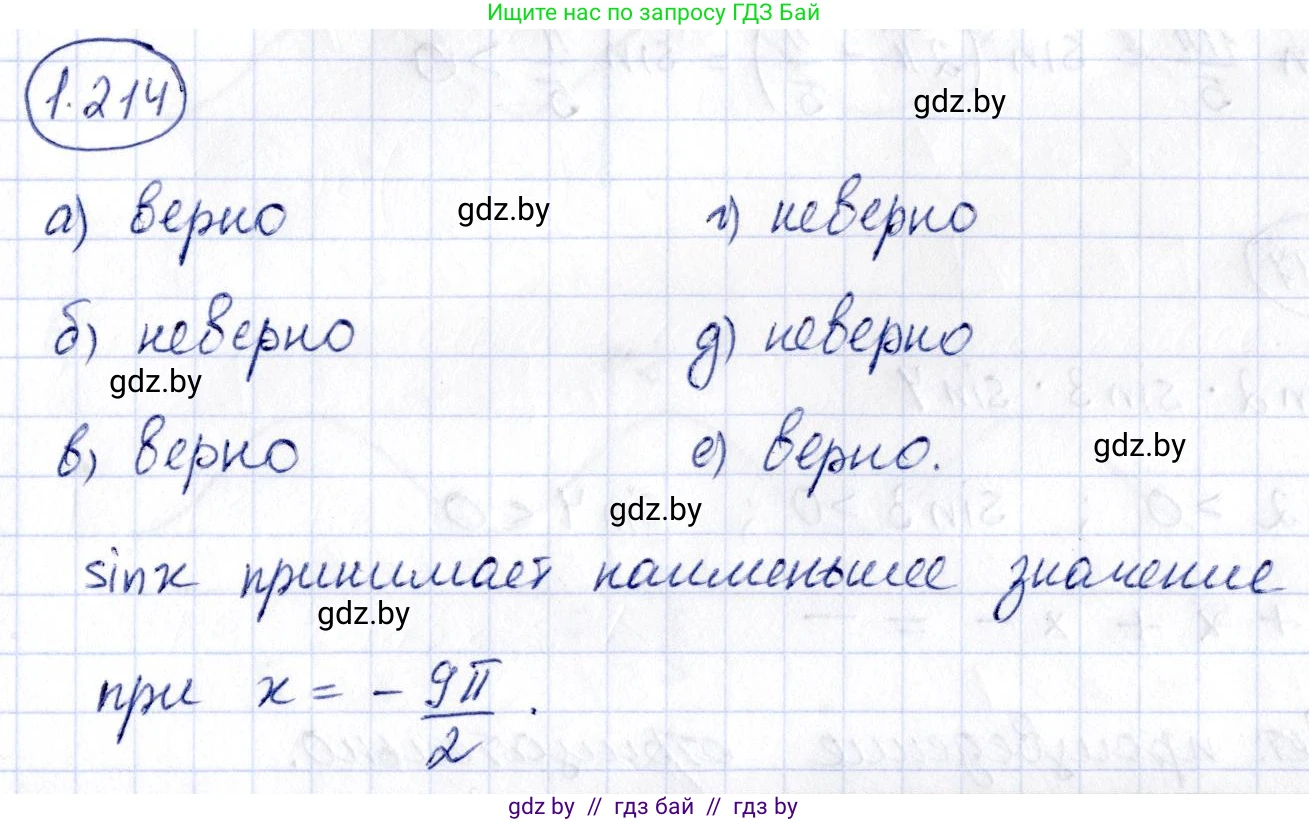 Ищите нас по запросу ГДЗ Бай
1.214
gdz.by
а) верно
gdz.by
г) неверно
б) неверно
д) неверно
gdz.by
в) верно
е) верно.
gdz.by
gdz.by
sinx принимает наименьшее значение
gdz.by
при x = - 9π/2 .
gdz.by // гдз бай // гдз by